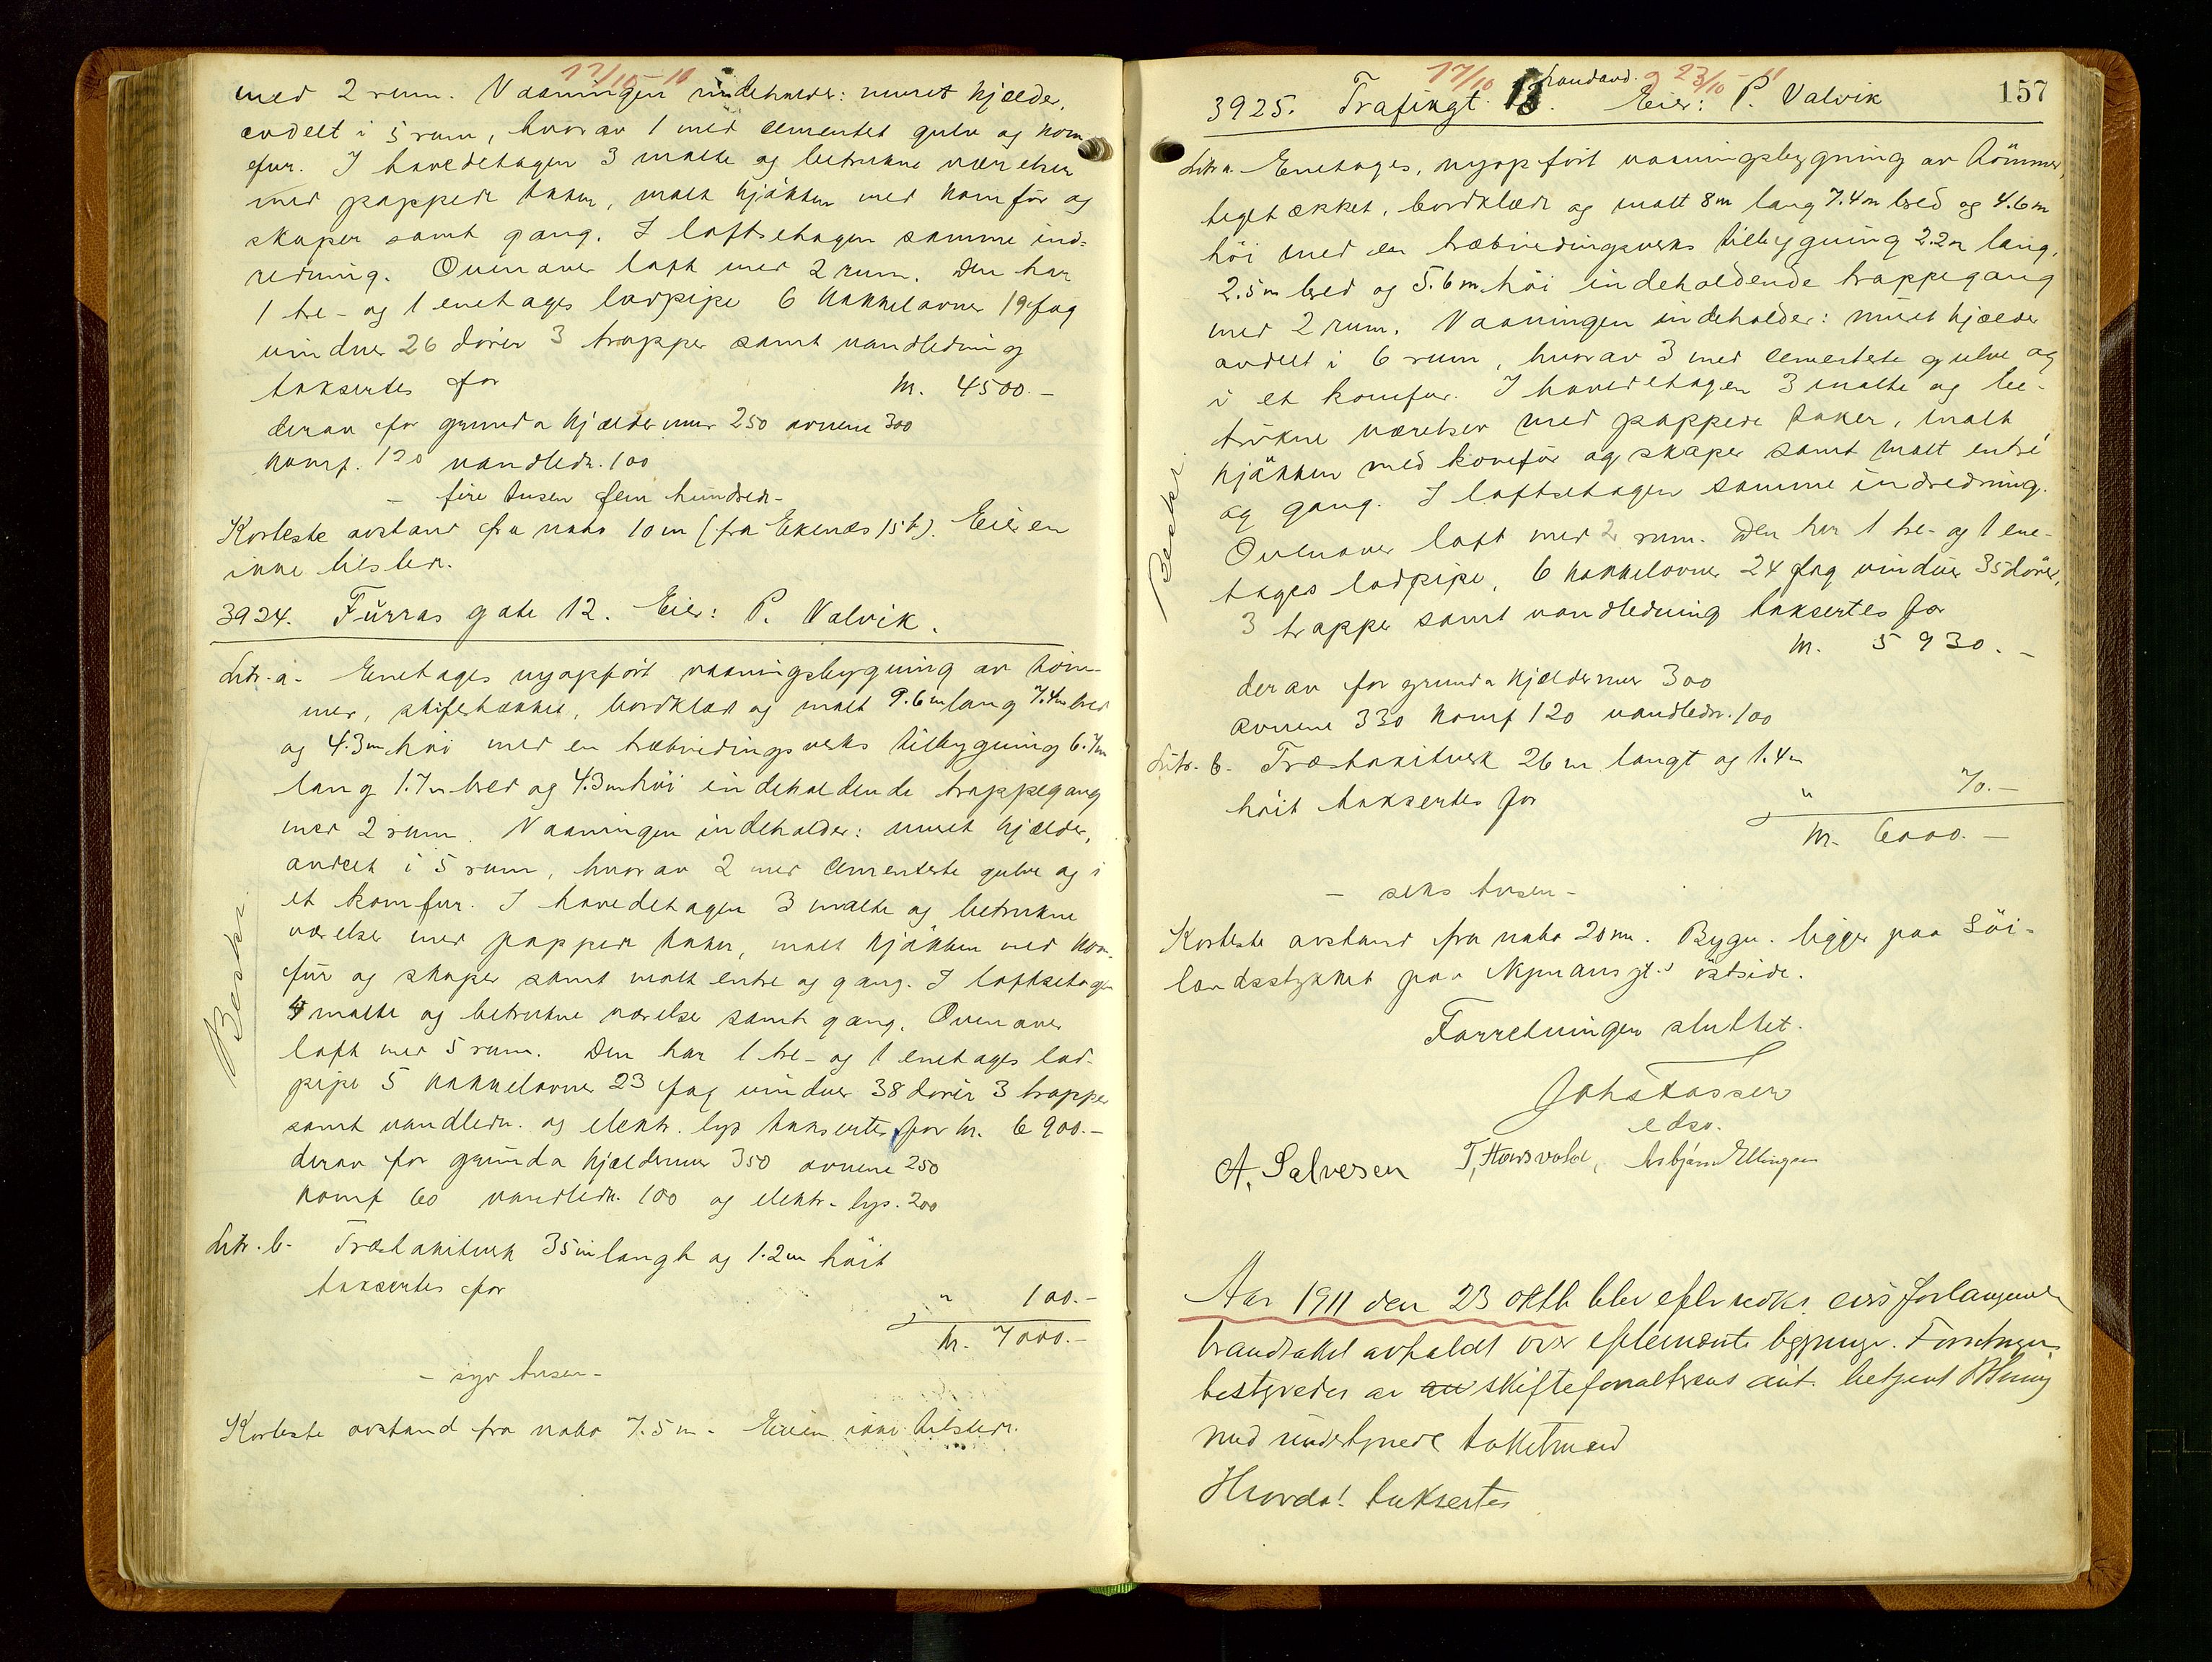 17/10 - 11
med 2 rum. Vaaningen indeholder: muret kjælder,
avdelt i 5 rum, hvorav 1 med cementet gulv og kom-
fur. I hovedetagen 3 malte og betrukne værelser
med pappede taker, malt kjøkken med komfür og
skaper samt gang. I loftsetagen samme ind-
redning. Ovenover loft med 2 rum. Den har
1 tre- og 1 enetages lodpipe 6 kakkelovner 19 fag
vinduer 26 dører 3 trapper samt vandledning
taksertes for kr. 4500.-
derav for grund & kjældermur 250 ovnene 300
komf. 120 vandledn. 100
- fire tusen fem hundrede -
Korteste avstand fra nabo 10 m (fra Ekenæs 15 b). Eieren
ikke tilstede.
3924. Furras gate 12. Eier: P. Valvik.
Litr. a. Enetages nyopført vaaningsbygning av tøm-
mer, skifertækket, bordklædt og malt 9.6 m lang 7.4 m bred
og 4.3 m høi med en træbindingsverks tilbygning 6.7 m
lang 1.7 m bred og 4.3 m høi indeholdende trappegang
med 2 rum. Vaaningen indeholder: muret kjælder,
avdelt i 5 rum, hvorav 2 med cementerte gulve og i
et komfur. I hovedetagen 3 malte og betrukne
værelser med pappede taker, malt kjøkken med kom-
für og skaper samt malt entre og gang. I loftsetagen
4 malte og betrukne værelser samt gang. Ovenover
loft med 5 rum. Den har 1 tre- og 1 enetages lod-
pipe 5 kakkelovner 23 fag vinduer 38 dører 3 trapper
samt vandledn. og elektr. lys taksertes for kr. 6900.-
derav for grund & kjældermur 350 ovnene 250
komf 60 vandledn. 100 og elektr. lys. 200
Beskr.
Litr. b. Træstakitverk 35 m langt og 1.2 m høit
taksertes for " 100.-
kr. 7000.-
- syv tusen -
Korteste avstand fra nabo 7.5 m. Eieren ikke tilstede.
157
17/10 23/10 - 11
3925. Trafikgt. 13. Eier: P. Valvik
Litr a. Enetages, nyopført vaaningsbygning av tømmer,
tegltækket, bordklædt og malt 8 m lang 7.4 m bred og 4.6 m
høi med en træbindingsverks tilbygning 2.2 m lang,
2.5 m bred og 5.6 m høi indeholdende trappegang
med 2 rum. Vaaningen indeholder: muret kjælder
avdelt i 6 rum, hvorav 3 med cementerte gulve og
i et komfur. I hovedetagen 3 malte og be-
trukne værelser med pappede taker, malt
kjøkken med komfür og skaper samt malt entré
og gang. I loftsetagen samme indredning.
Ovenover loft med 2 rum. Den har 1 tre- og 1 ene-
tages lodpipe, 6 kakkelovner 24 fag vinduer 35 dører,
3 trapper samt vandledning taksertes for
kr. 5930.-
Beskr.
derav for grund & kjældermur 300
ovnene 330 komf 120 vandledn. 100
Litr. b. Træstakitverk 26 m langt og 1.4 m
høit taksertes for " 70.-
kr. 6000.-
- seks tusen -
Korteste avstand fra nabo 20 m. Bygn. ligger paa Söi-
landsstykket paa Nymansgt.s østside.
Forretningen sluttet.
Johs Fasser
edsv.
A. Salvesen T. Hansvold, Asbjørn Ellingsen
Aar 1911 den 23 oktb blev efter vedk. eiers forlangende
brandtakst avholdt over efternevnte bygninger. Forretningen
bestyredes av av skifteforvalterens aut. betjent
med undertegnede takstmænd
Hvorda! taksertes